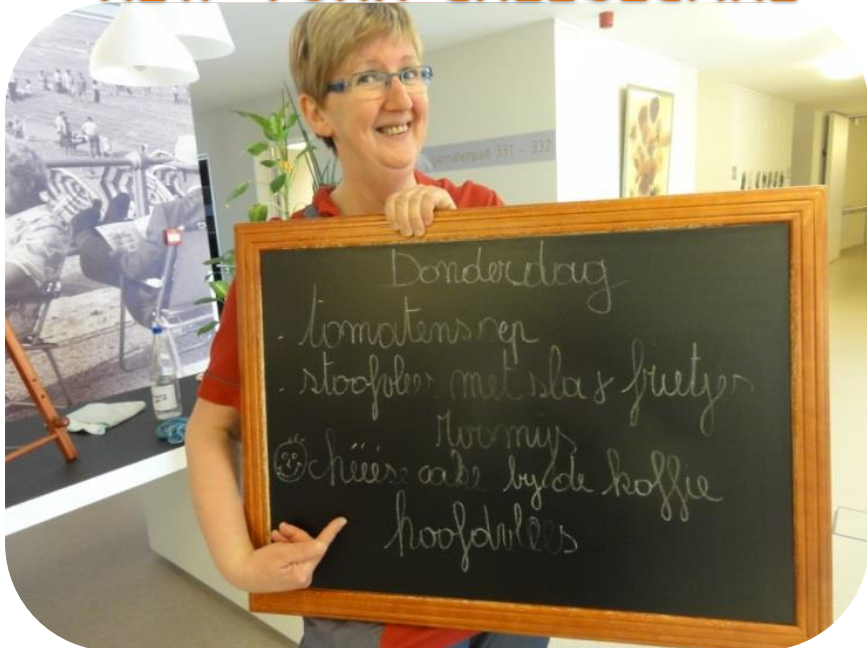 garnalenpad 331 - 332
Donderdag
- tomatensoep
- stoofvlees met sla & frietjes
roomijs
chééése cake by de koffie
hoofdvlees